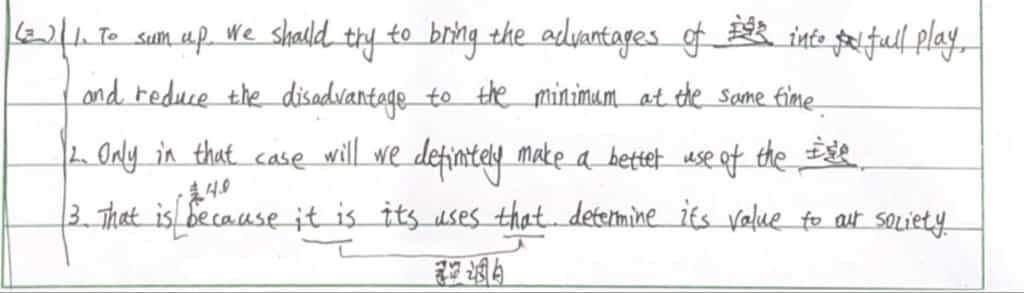 (三) 1. To sum up, We should try to bring the advantages of 主题 into full play,
and reduce the disadvantage to the minimum at the same time.
2. Only in that case will we definitely make a better use of the 主题.
表从句
3. That is [because it is its uses that determine its value to our society.
强调句